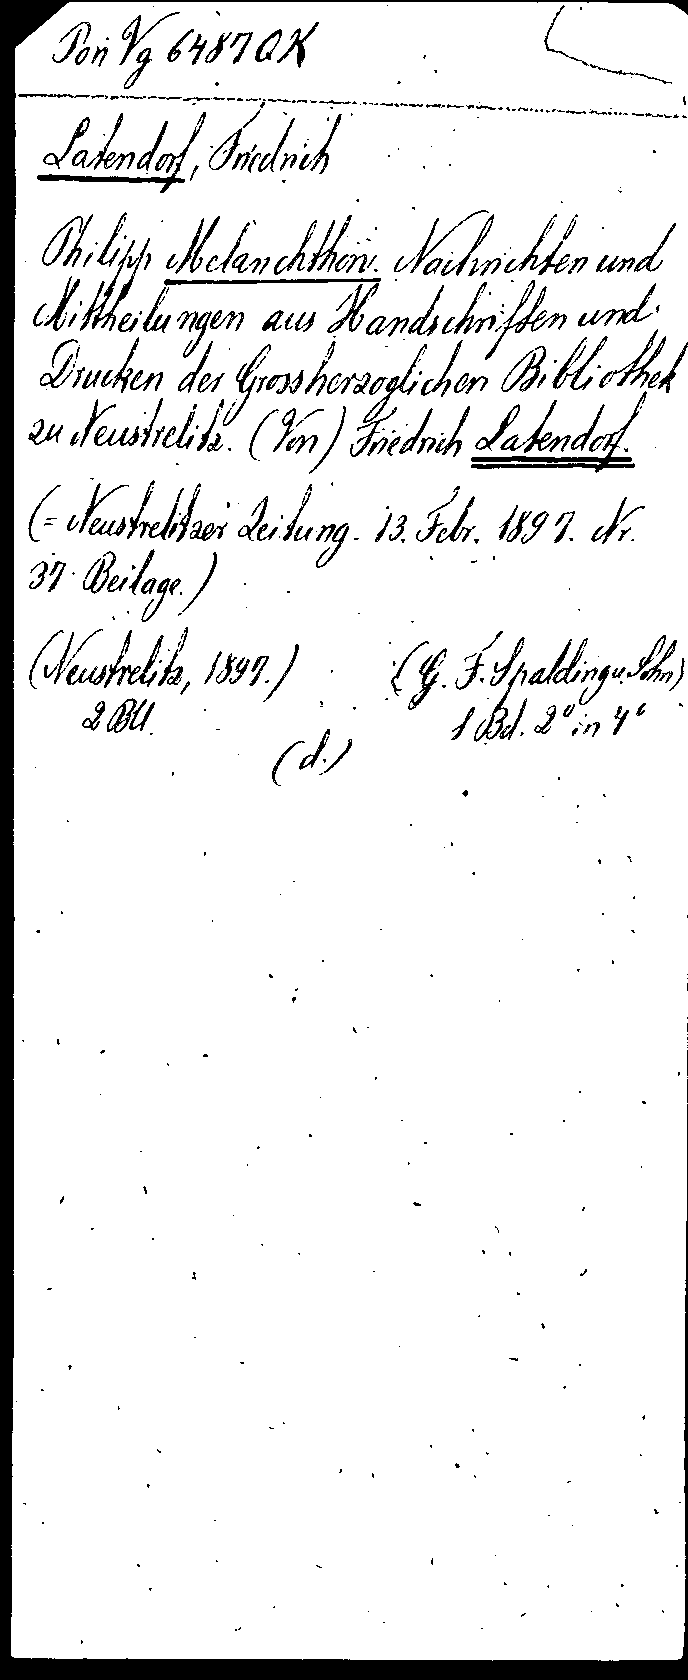 Pon Vg 6487 QK
Latendorf, Friedrich
Philipp Melanchthon. Nachrichten und
Mittheilungen aus Handschriften und
Drucken der Grossherzoglichen Bibliothek
zu Neustrelitz. (Von) Friedrich Latendorf.
(= Neustrelitzer Zeitung. 13. Febr. 1897. Nr.
37. Beilage.)
(Neustrelitz, 1897.) (G. F. Spalding u. Sohn)
2 Bll. 1 Bd. 2° in 4°
(d.)